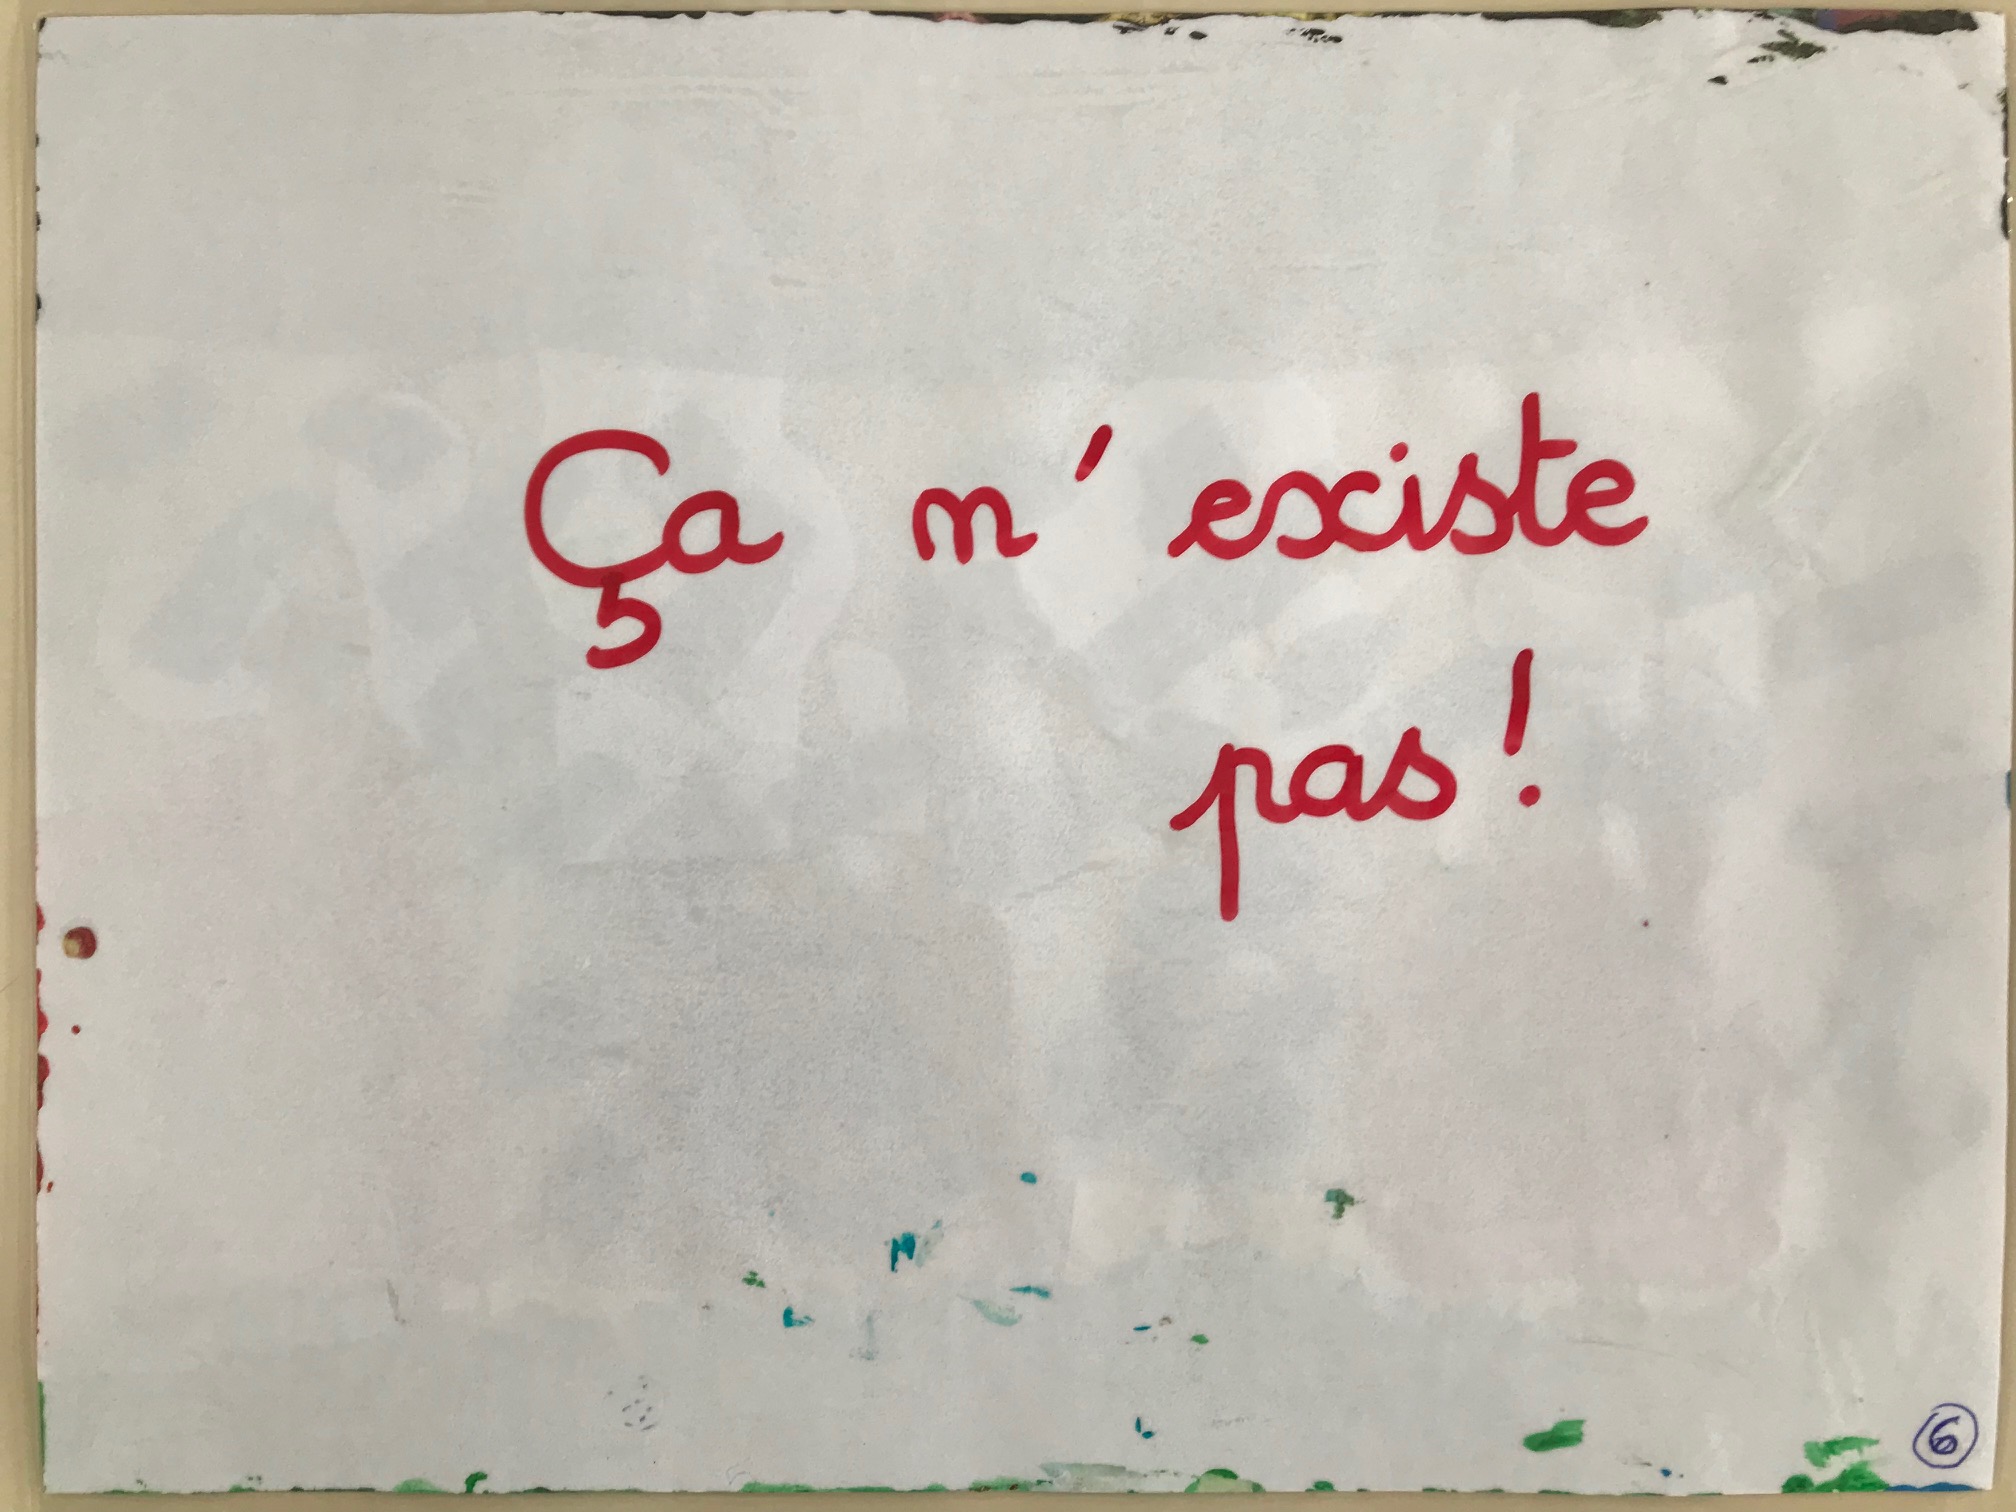 Ça n'existe
pas !
6